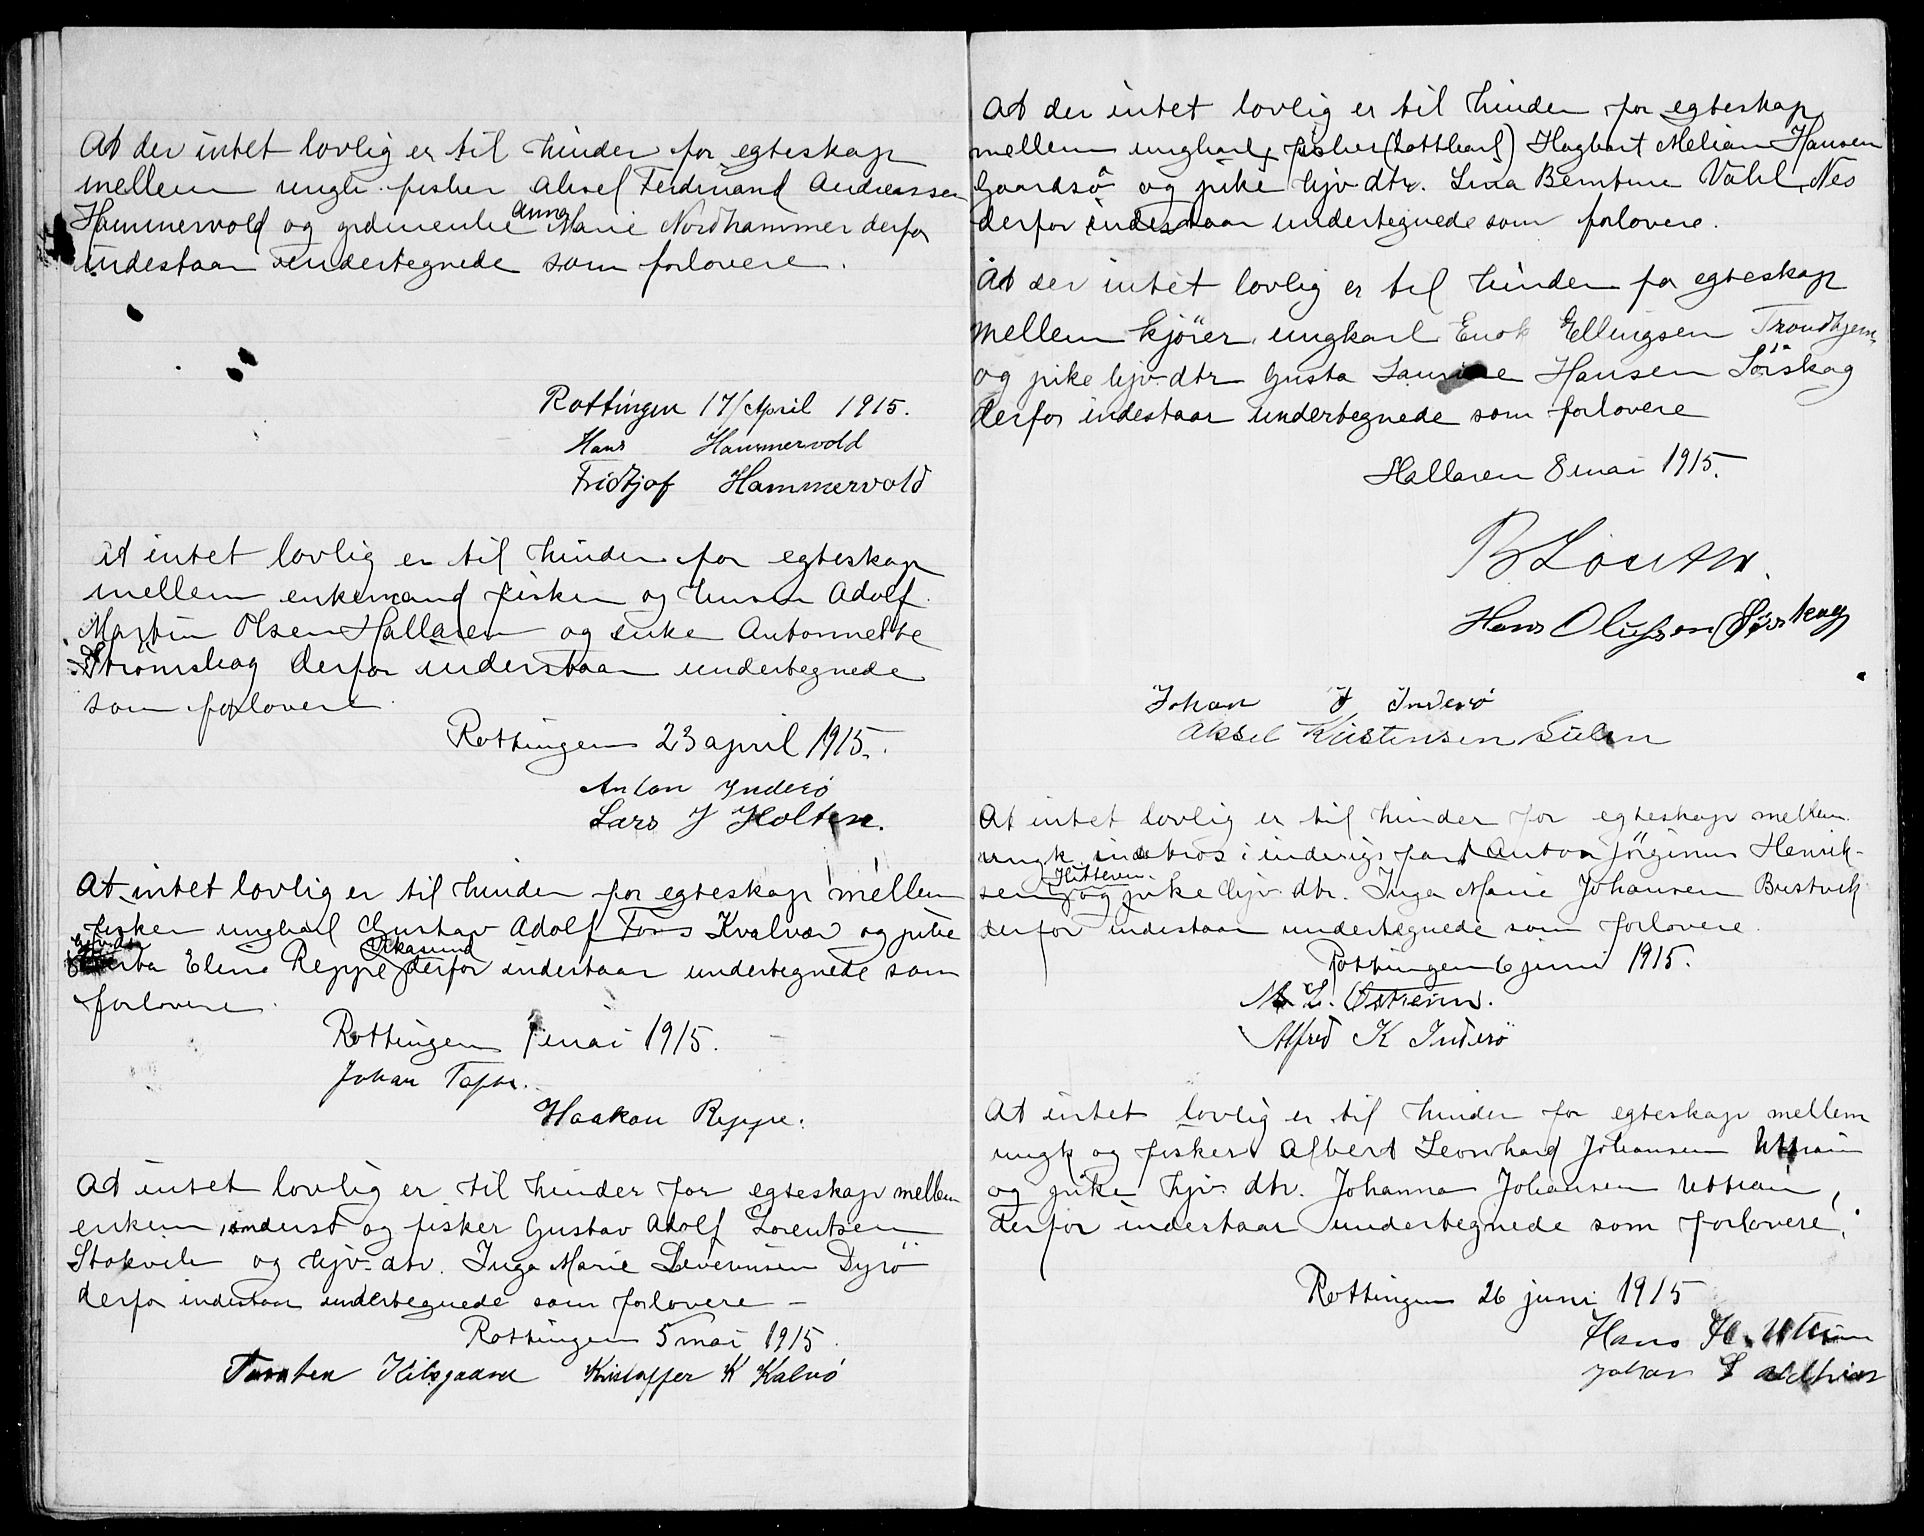 At der intet lovlig er til hinder for egteskap
mellem ungk. fisker Aksel Ferdinand Andreassen
Hammervold og gdmenke Anna Marie Nordhammer derfor
indestaar undertegnede som forlovere.
Rottingen 17/April 1915.
Hans Hammervold
Fridtjof Hammervold
At intet lovlig er til hinder for egteskap
mellem enkemand fisker og Adolf
Martin Olsen Hallaren og enke Antonnette
Strömskag derfor inderstaar undertegnede
som forlovere
Rottingen 23 april 1915.
Anton Inderö
Lars J Holten.
At intet lovlig er til hinder for egteskap mellem
fisker ungkarl Gustav Adolf Kvalvær og pike
hjv. dtr. Elena Reppe Ukasund derfor indestaar undertegnede som
forlovere.
Rottingen 1 mai 1915.
Johan
Haakon Reppe.
At intet lovlig er til hinder for egteskap mellem
enkem, inderst og fisker Gustav Adolf Lorentsen
Stokvik og hjv. dtr. Inga Marie Severinsen Dyrö
derfor indestaar undertegnede som forlovere -
Rottingen 5 mai 1915.
Torsten Kristoffer K Kalvö
At der intet lovlig er til hinder for egteskap
mellem ungkarl, fisker (Lottkarl) Hagbart Melian Hansen
Gaardsö og pike hjv. dtr. Lina Berntine Vahl, Nes
derfor indestaar undertegnede som forlovere.
At der intet lovlig er til hinder for egteskap
mellem kjörer, ungkarl Enok Ellingsen Trondhjem,
og pike hjv. dtr Gusta Laurine Hansen Sörskag
derfor indestaar undertegnede som forlovere
Hallaren 8 mai 1915.
Hans Olufsen Sørskag
Johan J Inderö
Aksel Kristensen Sulen
At intet lovlig er til hinder for egteskap mellem
ungk. i inderigs fart Anton Jörginus Henrik-
sen Hitteren. og pike hjv. dtr. Inga Marie Johansen Bustvik
derfor indestaar undertegnede som forlovere.
Rottingen 6 juni 1915.
M L.
Alfred K Inderö
At intet lovlig er til hinder for egteskap mellem
ungk og fisker Albert Leonhard Johansen Uttian
og pike hjv. dtr. Johanna Johansen Uttian,
derfor indestaar undertegnede som forlovere.
Rottingen 26 juni 1915
Hans H. Uttian
Johan L Uttian